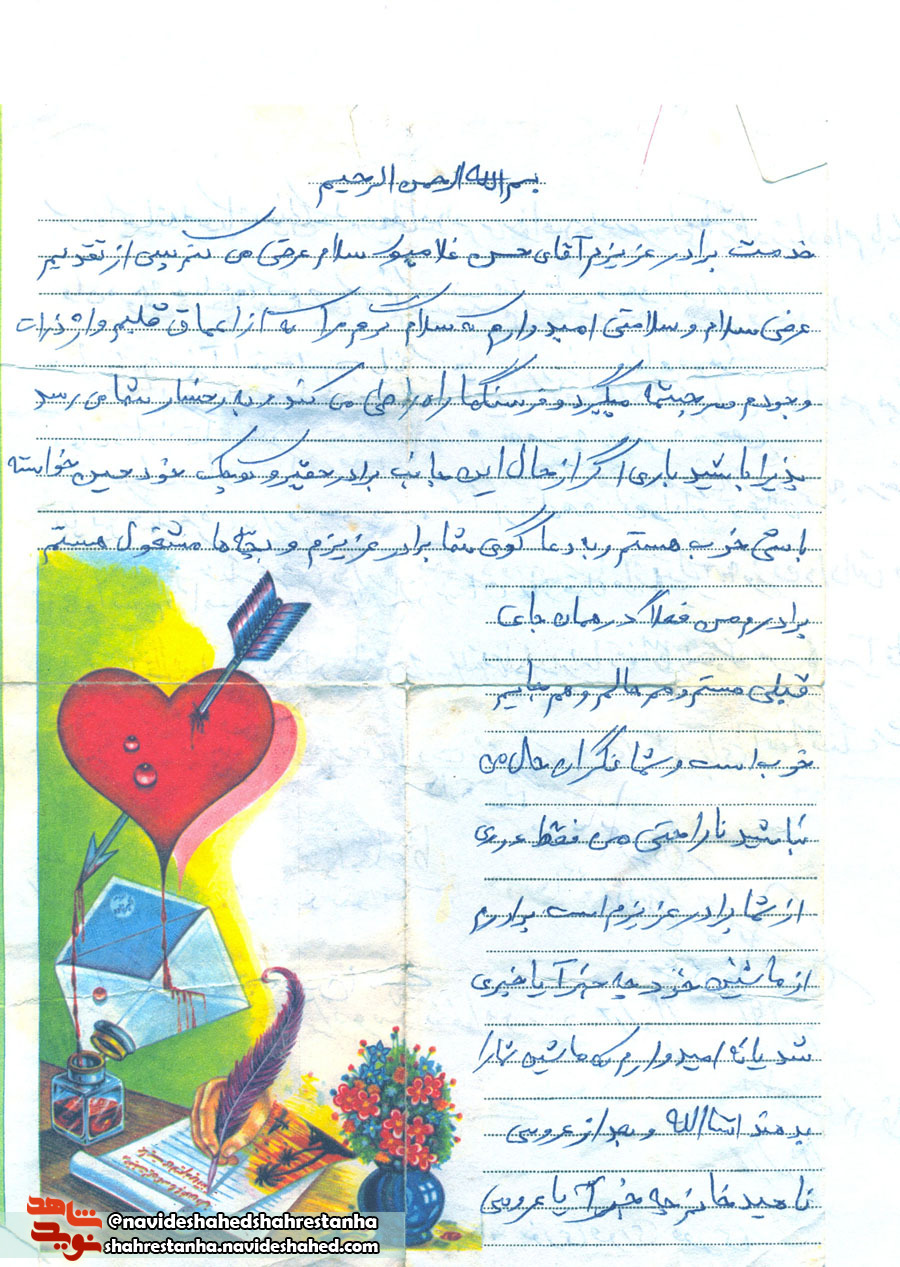 بسم الله الرحمن الرحیم
خدمت برادر عزیزم آقای حسن غلامپور سلام عرض می کنم پس از تقدیم
عرض سلام و سلامتی امید وارم که سلام گرم مرا که از اعماق قلبم و از ذرات
وجودم سر چشمه میگیرد و فرسنگها راه را طی می کند و به رخسار شما می رسد
پذیرا باشید باری اگر از حال این جانب برادر حقیر و کوچک خود حسین خواسته
باشی خوب هستم و به دعا گوی شما برادر عزیزم و بچه ها مشغول هستم
برادرم من فعلا در همان جای
قبلی هستم و هم حالم و هم جایم
خوب است و شما نگران حال من
نباشید ناراحتی من فقط دوری
از شما برادر عزیزم است برادرم
از ماشین خود چه خبر آیا خبری
شد یا نه امید وارم که ماشین را
بدهند انشاالله و بعد از عروسی
ناهید خانم چه خبر آیا عروسی
نوید شاهد
@navideshahedshahrestanha
shahrestanha.navideshahed.com